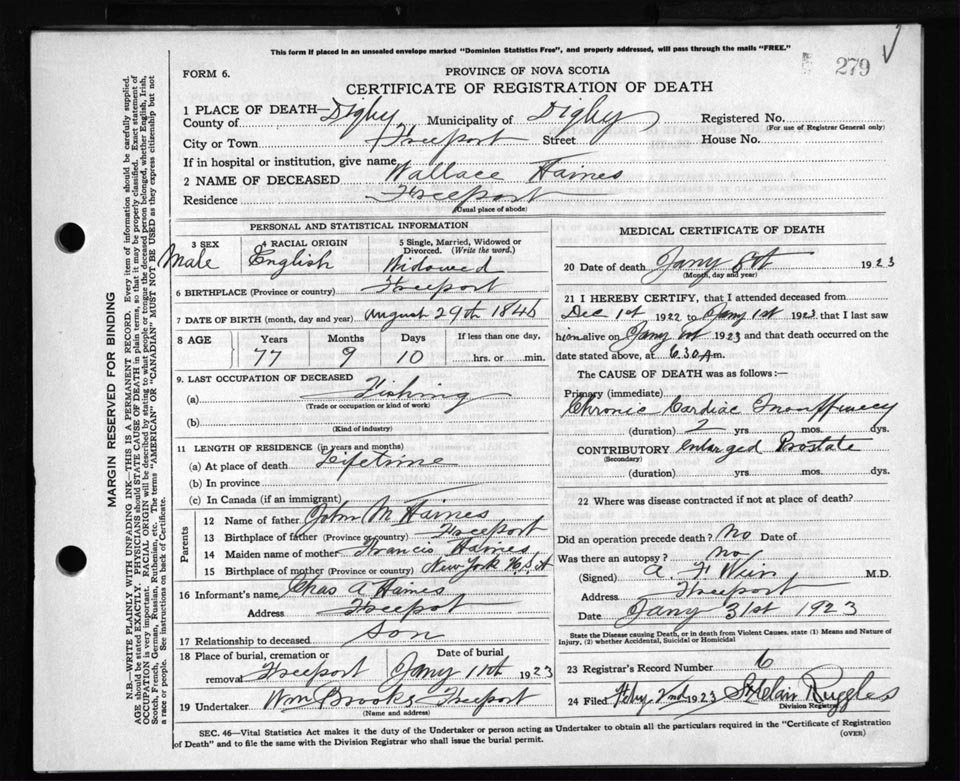 This form if placed in an unsealed envelope marked "Dominion Statistics Free", and properly addressed, will pass through the mails "FREE."
279
FORM 6.
PROVINCE OF NOVA SCOTIA
CERTIFICATE OF REGISTRATION OF DEATH
1 PLACE OF DEATH—
County of Digby Municipality of Digby Registered No.
(For use of Registrar General only)
City or Town Freeport Street House No.
If in hospital or institution, give name
2 NAME OF DECEASED Wallace Haines
Residence Freeport
(Usual place of abode)
PERSONAL AND STATISTICAL INFORMATION
3 SEX 4 RACIAL ORIGIN 5 Single, Married, Widowed or Divorced. (Write the word.)
Male English Widowed
6 BIRTHPLACE (Province or country) Freeport
7 DATE OF BIRTH (month, day and year) August 29th
8 AGE Years Months Days If less than one day,
77 9 10 hrs. or min.
9. LAST OCCUPATION OF DECEASED
(a) Fishing
(Trade or occupation or kind of work)
(b)
(Kind of industry)
11 LENGTH OF RESIDENCE (in years and months)
(a) At place of death Lifetime
(b) In province
(c) In Canada (if an immigrant)
Parents
12 Name of father John M Haines
13 Birthplace of father (Province or country) Freeport
14 Maiden name of mother Francis Haines
15 Birthplace of mother (Province or country) New York U.S.A
16 Informant's name Chas A Haines
Address Freepot
17 Relationship to deceased Son
18 Place of burial, cremation or removal Date of burial
Freeport Jany 11th 1923
19 Undertaker Wm Brooks Freeport
(Name and address)
MEDICAL CERTIFICATE OF DEATH
20 Date of death Jany 8th 1923
(Month, day and year)
21 I HEREBY CERTIFY, that I attended deceased from
Dec 1st 1922 to Jany 1st 1923 that I last saw
him alive on Jany 1923 and that death occurred on
date stated above, at 6.30 A m.
The CAUSE OF DEATH was as follows:—
Primary (immediate)
Chronic Cardiac
(duration) 2 yrs. mos. dys.
CONTRIBUTORY enlarged Prostate
(Secondary)
(duration) yrs. mos. dys.
22 Where was disease contracted if not at place of death?
Did an operation precede death? No Date of
Was there an autopsy? no
(Signed) A. F Weir M.D.
Address Freeport
Date Jany 31st 1923
State the Disease causing Death, or in death from Violent Causes, state (1) Means and Nature of
Injury, (2) whether Accidental, Suicidal or Homicidal
23 Registrar's Record Number 6
24 Filed Feby. 2nd 1923 St Clair Ruggles
Division Registrar
SEC. 46—Vital Statistics Act makes it the duty of the Undertaker or person acting as Undertaker to obtain all the particulars required in the "Certificate of Registration
of Death" and to file the same with the Division Registrar who shall issue the burial permit.
(OVER)
MARGIN RESERVED FOR BINDING
N.B.—WRITE PLAINLY WITH UNFADING INK—THIS IS A PERMANENT RECORD. Every item of information should be carefully supplied.
AGE should be stated EXACTLY. PHYSICIANS should STATE CAUSE OF DEATH in plain terms, so that it may be properly classified. Exact statement of
OCCUPATION is very important. RACIAL ORIGIN will be described by stating to what people or tongue the deceased person belonged, whether English, Irish,
Scotch, French, German, Russian, Ruthenian, etc. The terms "AMERICAN" or "CANADIAN" MUST NOT BE USED as they express citizenship but not
a race or people. See instructions on back of Certificate.